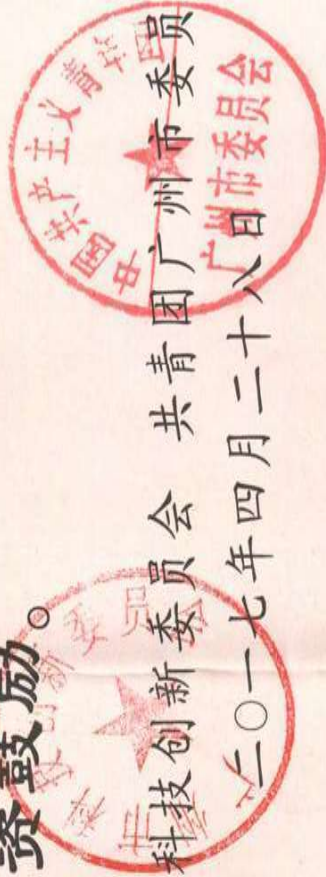 资鼓励。
科技创新委员会 共青团广州市委员
二〇一七年四月二十八日
中国共产主义青年团
广州市委员会